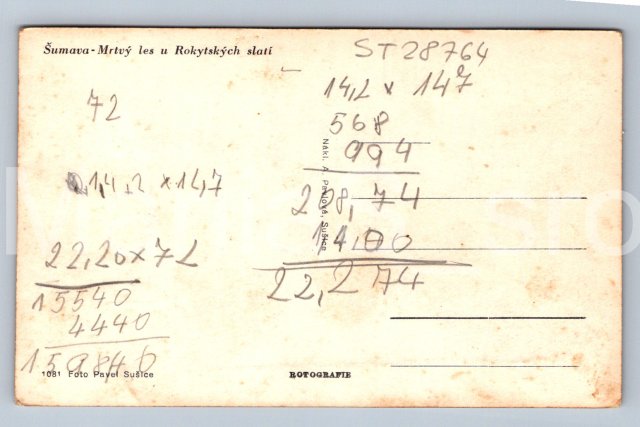 Šumava - Mrtvý les u Rokytských slatí
ST 28764
72
14,2 x 147
568
994
14,2 x 14,7
208,74
14,00
22,274
22,20 x 72
15540
4440
159840
Nákl. A. Pavlová, Sušice
1081 Foto Pavel Sušice
ROTOGRAFIE